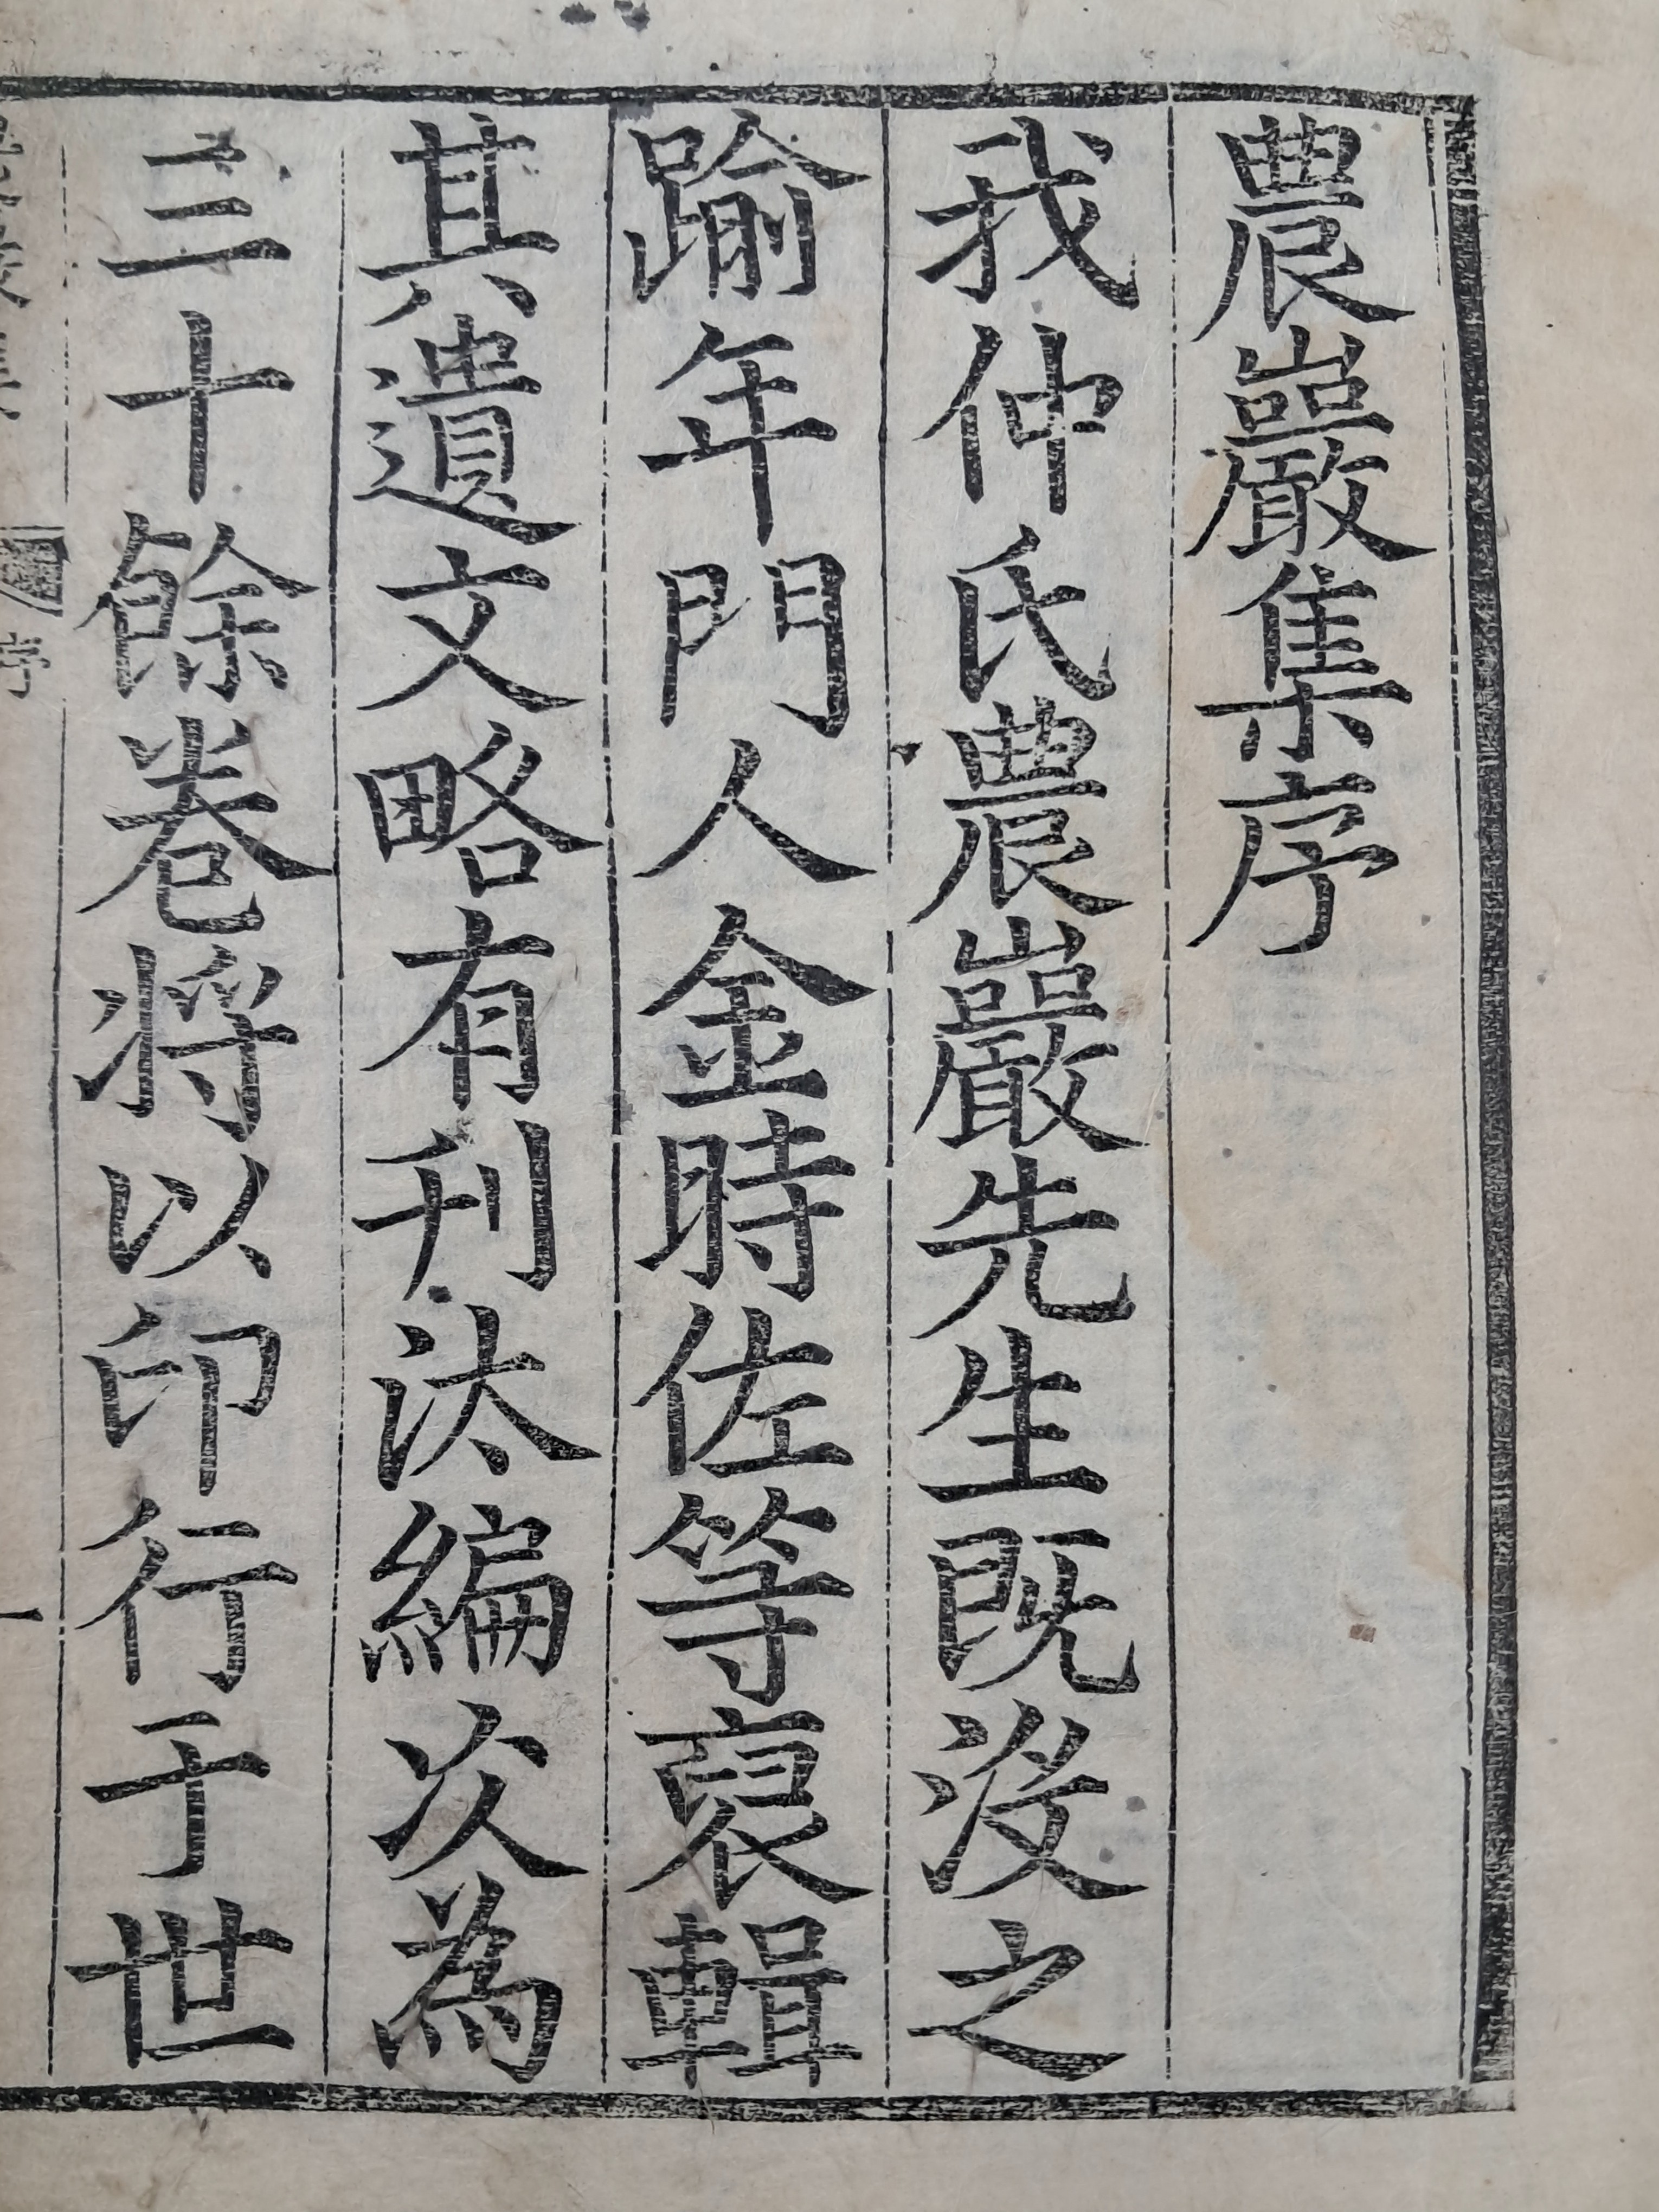 農巖集序
我仲氏農巖先生既沒之
踰年門人金時佐等裒輯
其遺文略有刊汰編次為
三十餘卷將以印行于世
序
一